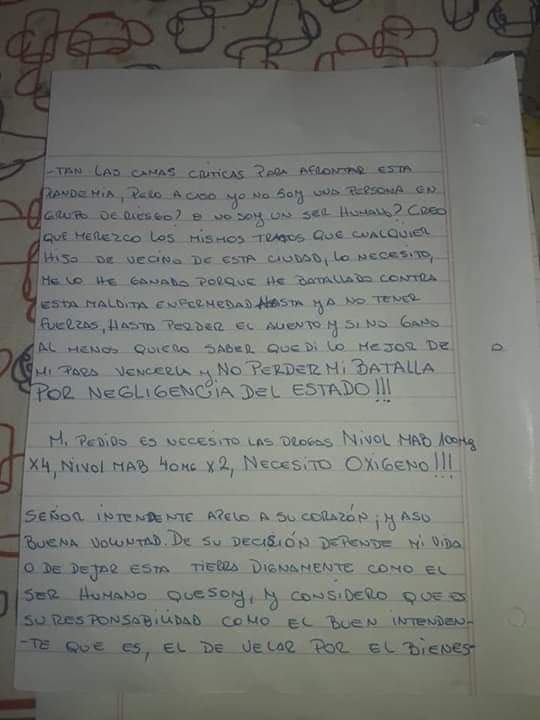 -TAN LAS CAMAS CRITICAS PARA AFRONTAR ESTA
PANDEMIA, PERO ACASO YO NO SOY UNA PERSONA EN
GRUPO DE RIESGO? O NO SOY UN SER HUMANO? CREO
QUE MEREZCO LOS MISMOS TRATOS QUE CUALQUIER
HIJO DE VECINO DE ESTA CIUDAD, LO NECESITO,
ME LO HE GANADO PORQUE HE BATALLADO CONTRA
ESTA MALDITA ENFERMEDAD HASTA YA NO TENER
FUERZAS, HASTA PERDER EL ALIENTO Y SI NO GANO
AL MENOS QUIERO SABER QUE DI LO MEJOR DE
MI PARA VENCERLA Y NO PERDER MI BATALLA
POR NEGLIGENCIA DEL ESTADO!!!
MI PEDIDO ES NECESITO LAS DROGAS NIVOL MAB 100Mg
X4, NIVOL MAB 40MG X2, NECESITO OXIGENO!!!
SEÑOR INTENDENTE APELO A SU CORAZÓN, Y A SU
BUENA VOLUNTAD. DE SU DECISIÓN DEPENDE MI VIDA
O DE DEJAR ESTA TIERRA DIGNAMENTE COMO EL
SER HUMANO QUE SOY, Y CONSIDERO QUE ES
SU RESPONSABILIDAD COMO EL BUEN INTENDEN-
-TE QUE ES, EL DE VELAR POR EL BIENES-